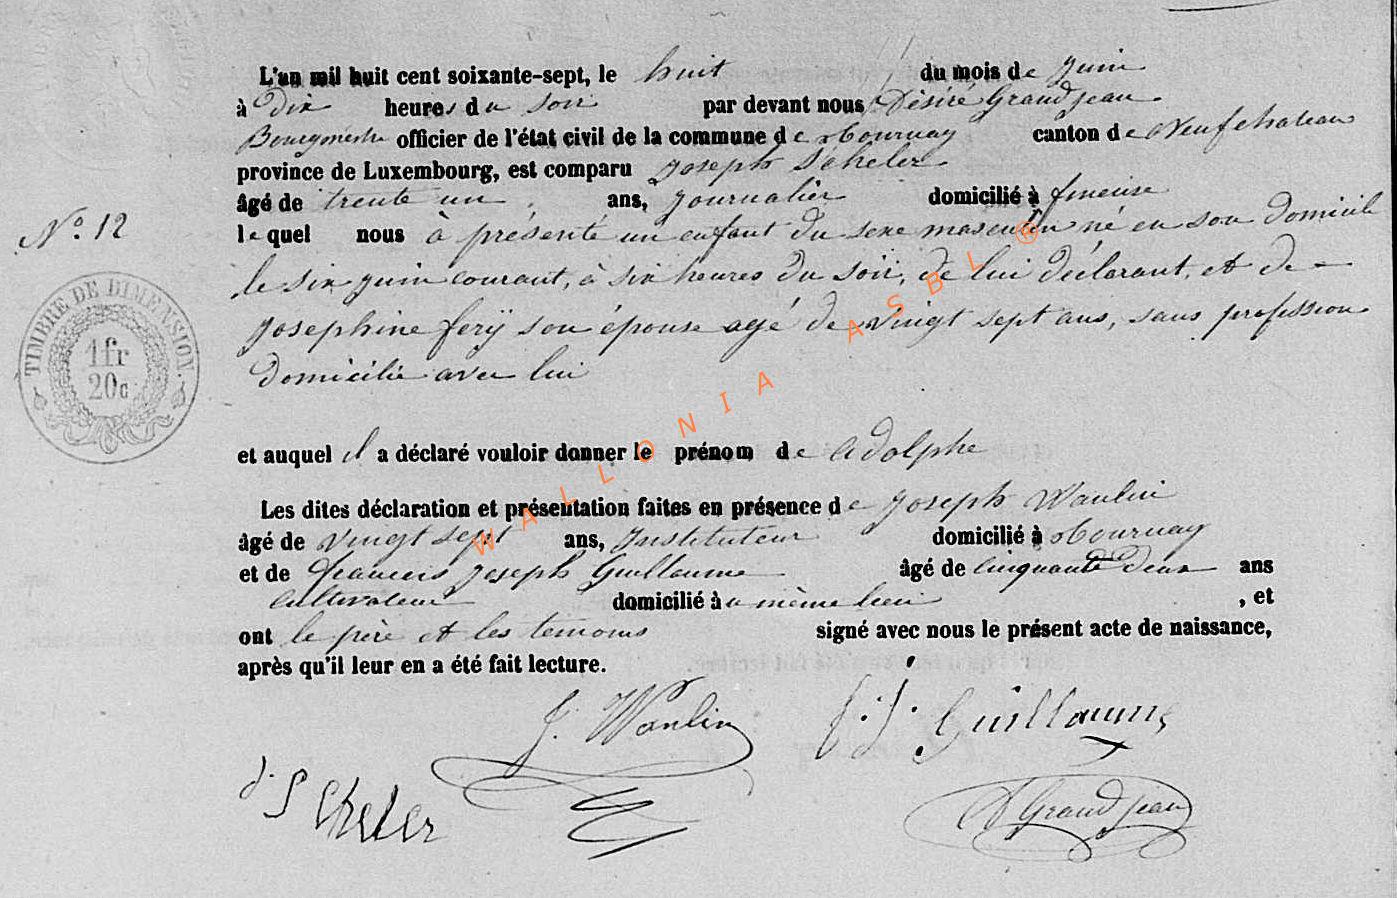 L'an mil huit cent soixante-sept, le huit du mois de juin
à Dix heures du soir par devant nous Désiré Grandjean
Bourgmestre officier de l'état civil de la commune de Tournay canton de Neufchateau
province de Luxembourg, est comparu Joseph Scheler
âgé de trente un ans, journalier domicilié à
lequel nous à présenté un enfant du sexe masculin né en son domicile
N° 12
le six juin courant, à six heures du soir, de lui déclarant, et de
Josephine ferÿ son épouse agé de vingt sept ans, sans profession
domicilié avec lui
TIMBRE DE DIMENSION.
1fr
20c
et auquel il a déclaré vouloir donner le prénom de Adolphe
Les dites déclaration et présentation faites en présence de Joseph Wanlin
âgé de vingt sept ans, Instituteur domicilié à Tournay
et de francois Joseph Guillaume âgé de cinquante deux ans
cultivateur domicilié au même lieu , et
ont le père et les temoins signé avec nous le présent acte de naissance,
après qu'il leur en a été fait lecture.
J. Wanlin f. J. Guillaume
J. Scheler D Grandjean
WALLONIA ASBL ®